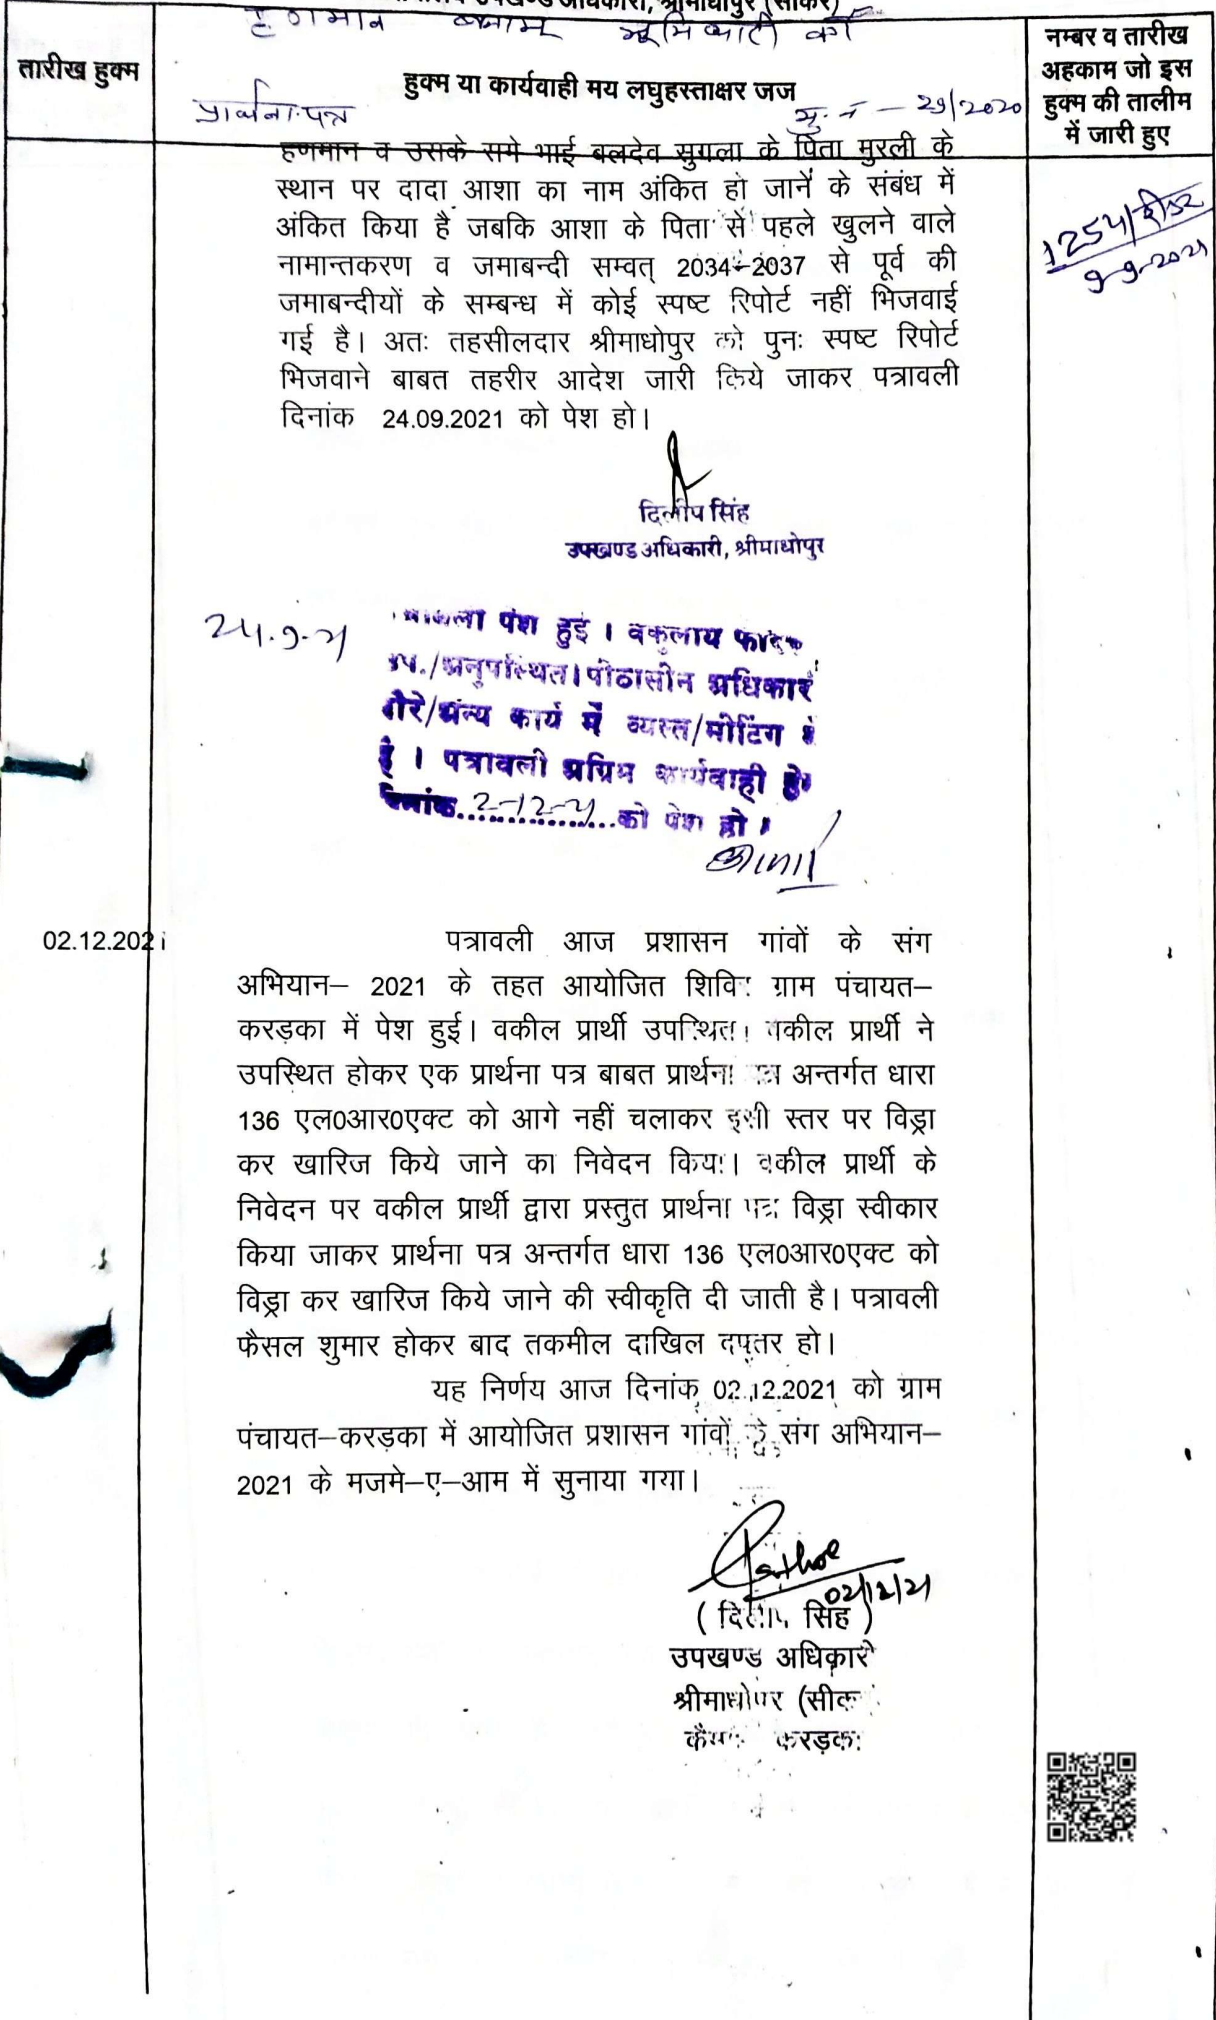 उपखण्ड अधिकारी, श्रीमाधोपुर (सीकर)
हणमान बनाम भूमिधारी का
तारीख हुक्म
हुक्म या कार्यवाही मय लघुहस्ताक्षर जज
नम्बर व तारीख
अहकाम जो इस
हुक्म की तालीम
में जारी हुए
प्रार्थना-पत्र
मु. नं - 29/2020
हणमान व उसके सगे भाई बलदेव सुगला के पिता मुरली के
स्थान पर दादा आशा का नाम अंकित हो जाने के संबंध में
अंकित किया है जबकि आशा के पिता से पहले खुलने वाले
नामान्तकरण व जमाबन्दी सम्वत् 2034-2037 से पूर्व की
जमाबन्दीयों के सम्बन्ध में कोई स्पष्ट रिपोर्ट नहीं भिजवाई
गई है। अतः तहसीलदार श्रीमाधोपुर को पुनः स्पष्ट रिपोर्ट
भिजवाने बाबत तहरीर आदेश जारी किये जाकर पत्रावली
दिनांक 24.09.2021 को पेश हो।
1254/रीडर
9-9-2021
दिलीप सिंह
उपखण्ड अधिकारी, श्रीमाधोपुर
24.9.21
पत्रावली पेश हुई । वकुलाय फरिक
उप./अनुपस्थित। पीठासीन अधिकारी
दौरे/अन्य कार्य में व्यस्त/मीटिंग में
है । पत्रावली अग्रिम कार्यवाही हेतु
दिनांक 2-12-21 को पेश हो ।
02.12.2021
पत्रावली आज प्रशासन गांवों के संग
अभियान– 2021 के तहत आयोजित शिविर ग्राम पंचायत–
करड़का में पेश हुई। वकील प्रार्थी उपस्थित। वकील प्रार्थी ने
उपस्थित होकर एक प्रार्थना पत्र बाबत प्रार्थना पत्र अन्तर्गत धारा
136 एल0आर0एक्ट को आगे नहीं चलाकर इसी स्तर पर विड्रा
कर खारिज किये जाने का निवेदन किया। वकील प्रार्थी के
निवेदन पर वकील प्रार्थी द्वारा प्रस्तुत प्रार्थना पत्र विड्रा स्वीकार
किया जाकर प्रार्थना पत्र अन्तर्गत धारा 136 एल0आर0एक्ट को
विड्रा कर खारिज किये जाने की स्वीकृति दी जाती है। पत्रावली
फैसल शुमार होकर बाद तकमील दाखिल दफ्तर हो।
यह निर्णय आज दिनांक 02.12.2021 को ग्राम
पंचायत–करड़का में आयोजित प्रशासन गांवों के संग अभियान–
2021 के मजमे–ए–आम में सुनाया गया।
02/12/21
( दिलीप सिंह )
उपखण्ड अधिकारी
श्रीमाधोपुर (सीकर)
कैम्प करड़का